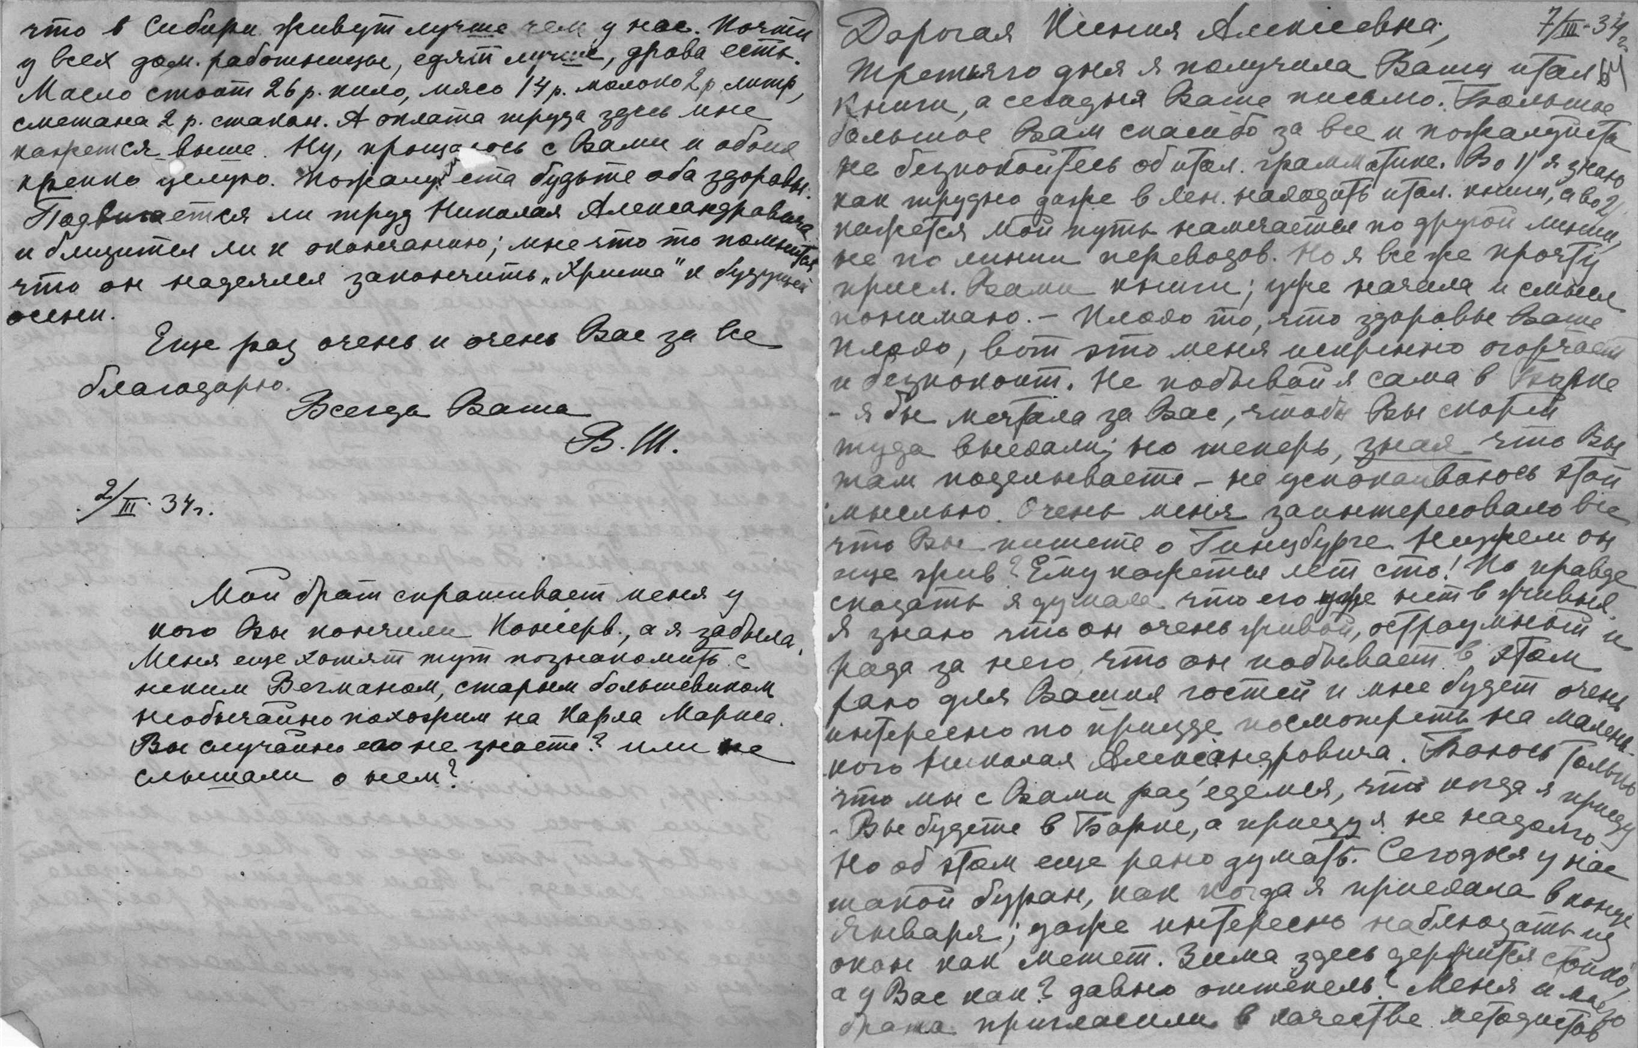 что в Сибири живут лучше чем у нас. Почти
у всех дом. работницы, едят лучше, дрова есть.
Масло стоит 26 р. кило, мясо 14 р. молоко 2 р литр,
сметана 2 р. стакан. А оплата труда здесь мне
кажется выше. Ну, прощаюсь с Вами и обоих
крепко целую. Пожалуйста будьте оба здоровы.
Подвигается ли труд Николая Александровича
и близится ли к окончанию; мне что то помнится
что он надеялся закончить „Христа" к будущей
осени.
Еще раз очень и очень Вас за все
благодарю.
Всегда Ваша
В. Ш.
2/III. 34 г.
Мой брат спрашивает меня у
кого Вы кончили Консерв., а я забыла.
Меня еще хотят тут познакомить с
неким Вегманом, старым большевиком
необычайно похожим на Карла Маркса.
Вы случайно его не знаете? или не
слышали о нем?
Дорогая Ксения Алексеевна, 7/III-34 г.
Третьяго дня я получила Ваши итал.
книги, а сегодня Ваше письмо. Большое
большое Вам спасибо за все и пожалуйста
не безпокойтесь об итал. грамматике. Во 1) я знаю
как трудно даже в Лен. находить итал. книги, а во 2)
кажется мой путь намечается по другой линии,
не по линии переводов. Но я все же прочту
присл. Вами книги; уже начала и смысл
понимаю. – Плохо то, что здоровье Ваше
плохо, вот это меня искренно огорчает
и безпокоит. Не побывай я сама в
– я бы мечтала за Вас, чтобы Вы скорей
туда выехали; но теперь, зная что Вы
там поделываете – не успокаиваюсь этой
мыслью. Очень меня заинтересовало все
что Вы пишете о Гинцбурге. Неужели он
еще жив? Ему кажется лет сто! По правде
сказать я думала что его уже нет в живых.
Я знаю что он очень живой, остроумный и
рада за него, что он побывает в этом
раю для Ваших гостей и мне будет очень
интересно по приезде посмотреть на малень-
кого Николая Александровича. Боюсь только
что мы с Вами раз'едемся, что когда я приеду
– Вы будете в Барке, а приеду я не надолго.
Но об этом еще рано думать. Сегодня у нас
такой буран, как когда я приехала в конце
Января; даже интересно наблюдать из
окон как метет. Зима здесь держится стойко,
а у Вас как? давно оттепель? Меня и моего
брата пригласили в качестве методистов